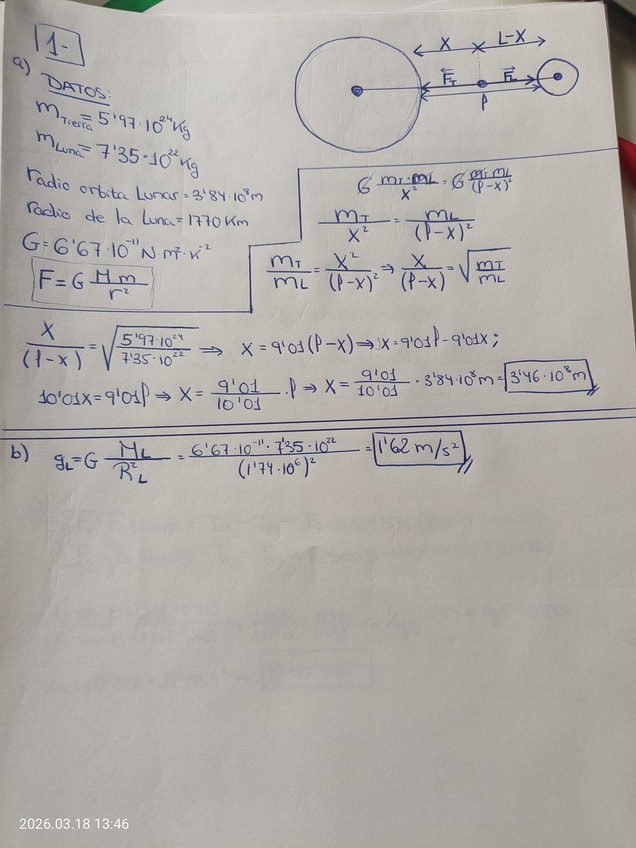 1-
a) DATOS:
m_Tierra = 5'97·10²⁴ Kg
m_Luna = 7'35·10²² Kg
radio orbita Lunar = 3'84·10⁸ m
radio de la Luna = 1770 Km
G = 6'67·10⁻¹¹ N·m²·K⁻²
F = G M m / r²
X L-X
F_T F_L
P
G m_T·m_L / X² = G m_T·m_L / (P-X)²
m_T / X² = m_L / (P-X)²
m_T / m_L = X² / (P-X)² ⇒ X / (P-X) = √(m_T / m_L)
X / (P-X) = √(5'97·10²⁴ / 7'35·10²²) ⇒ X = 9'01(P-X) ⇒ X = 9'01P - 9'01X;
10'01X = 9'01P ⇒ X = 9'01 / 10'01 · P ⇒ X = 9'01 / 10'01 · 3'84·10⁸ m = 3'46·10⁸ m
b) g_L = G M_L / R²_L = 6'67·10⁻¹¹ · 7'35·10²² / (1'74·10⁶)² = 1'62 m/s²
2026.03.18 13:46